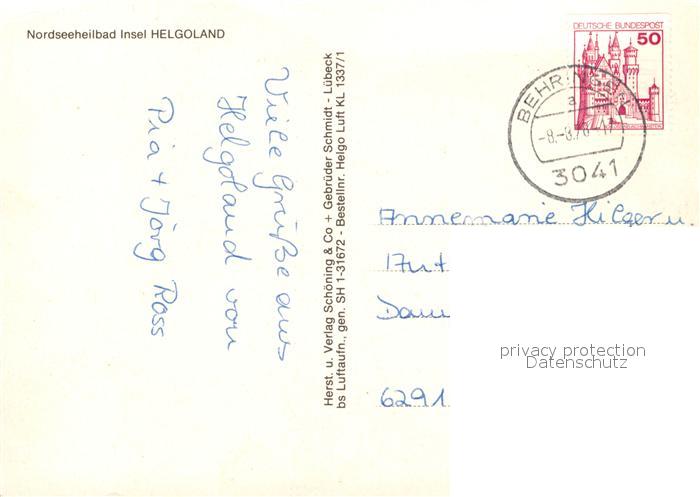 Nordseeheilbad Insel HELGOLAND
Viele Grüße aus
Helgoland von
Pia + Jörg Rass
Herst. u. Verlag Schöning & Co + Gebrüder Schmidt - Lübeck
bs Luftaufn., gen. SH 1-31672 - Bestellnr. Helgo Luft KL 1337/1
DEUTSCHE BUNDESPOST
50
3041
Annemarie Hilger u.
privacy protection
Datenschutz
6291